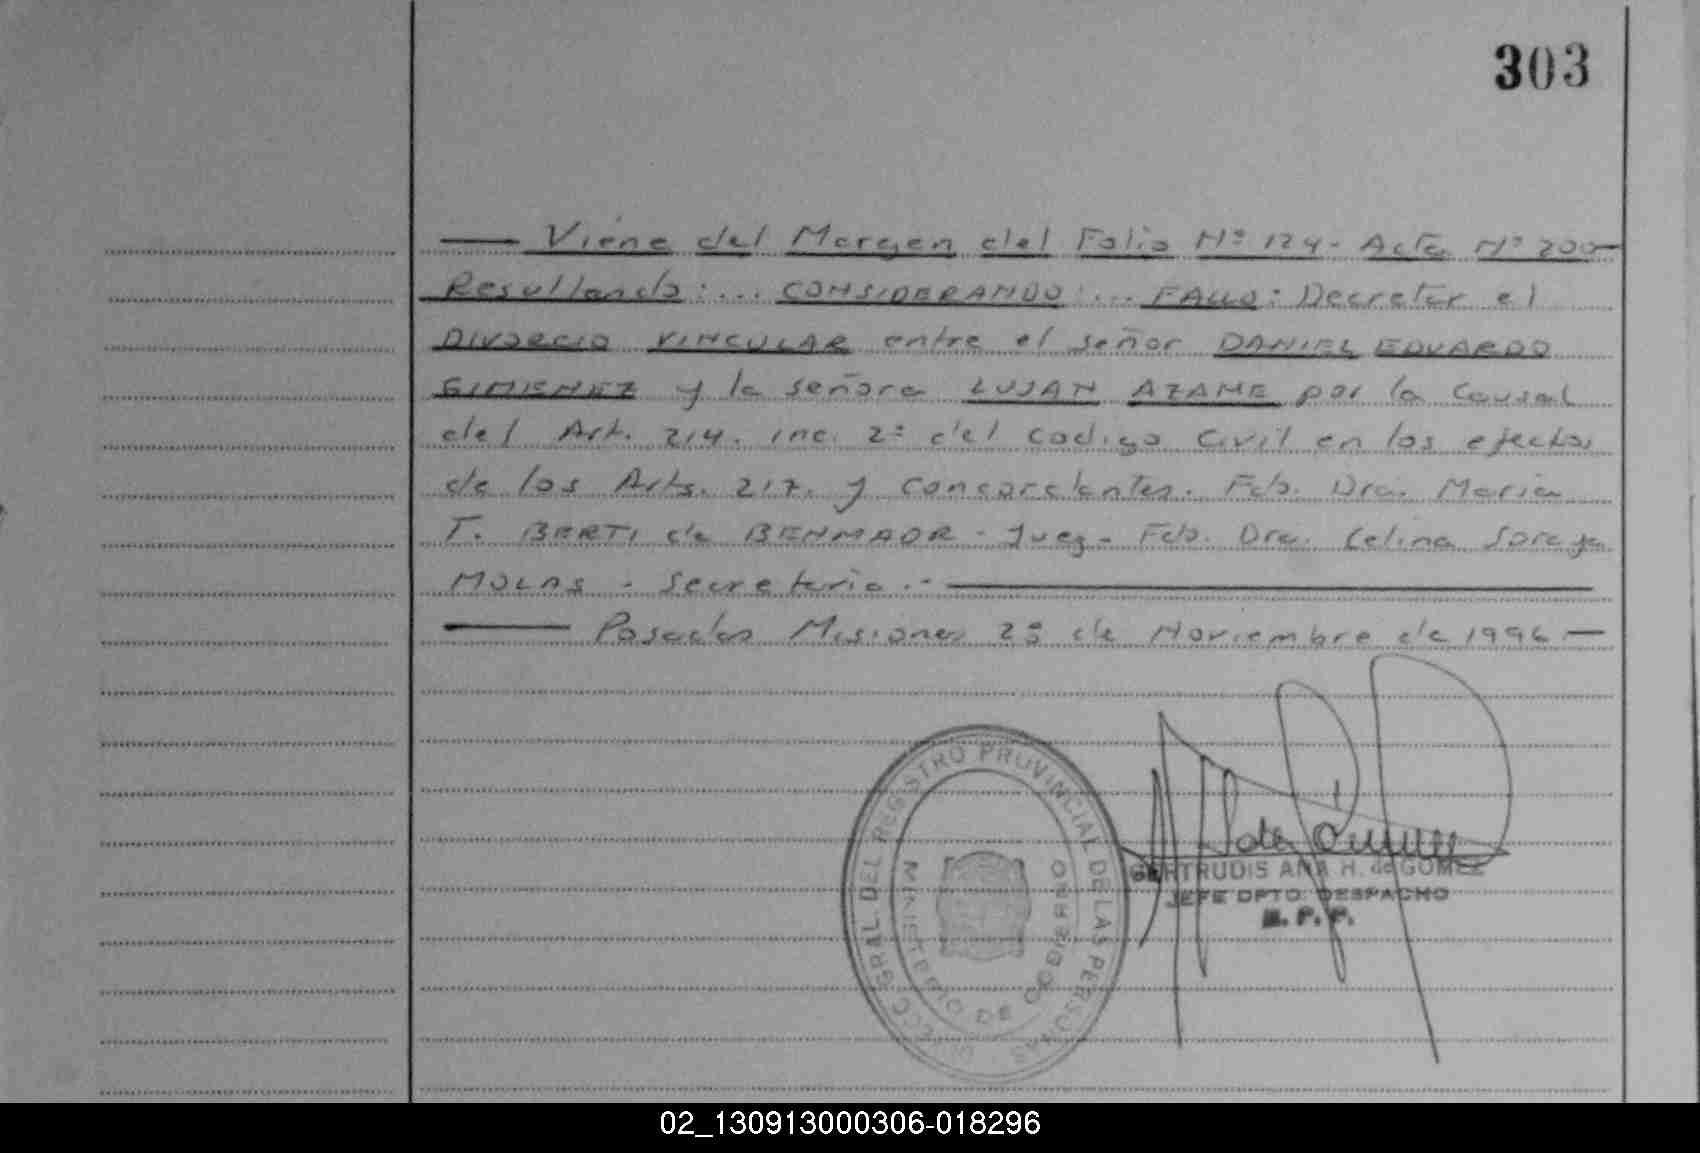 303
Viene del Margen del Folio Nº 124- Acta Nº 200-
Resultando:... CONSIDERANDO:... FALLO: Decretar el
DIVORCIO VINCULAR entre el señor DANIEL EDUARDO
GIMENEZ y la señora LUJAN AZAME por la Causal
del Art. 214. inc. 2º del Codigo Civil en los efectos
de los Arts. 217. y concordantes. Fdo. Dra. Maria
T. BERTI de BENMAOR - Juez- Fdo. Dra. Celina Soraya
MOLAS - Secretaria.-
Posadas Misiones 28 de Noviembre de 1996-
DIRECC. GRAL. DEL REGISTRO PROVINCIAL DE LAS PERSONAS
MINISTERIO DE GOBIERNO
GERTRUDIS ANA H. de GOMEZ
JEFE DPTO. DESPACHO
R. P. P.
02_130913000306-018296